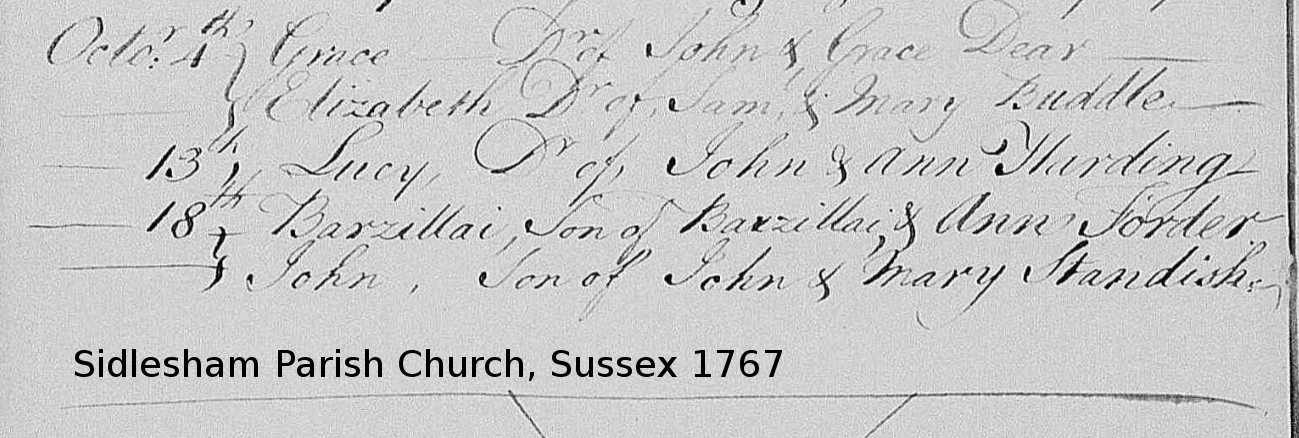 Octo.r 4th } Grace Dr of John & Grace Dear
Elizabeth Dr of Sam. & Mary Buddle
13th, Lucy, Dr of John & Ann Harding
18th } Barzillai, Son of Barzillai & Ann Forder
John, Son of John & Mary Standish.
Sidlesham Parish Church, Sussex 1767